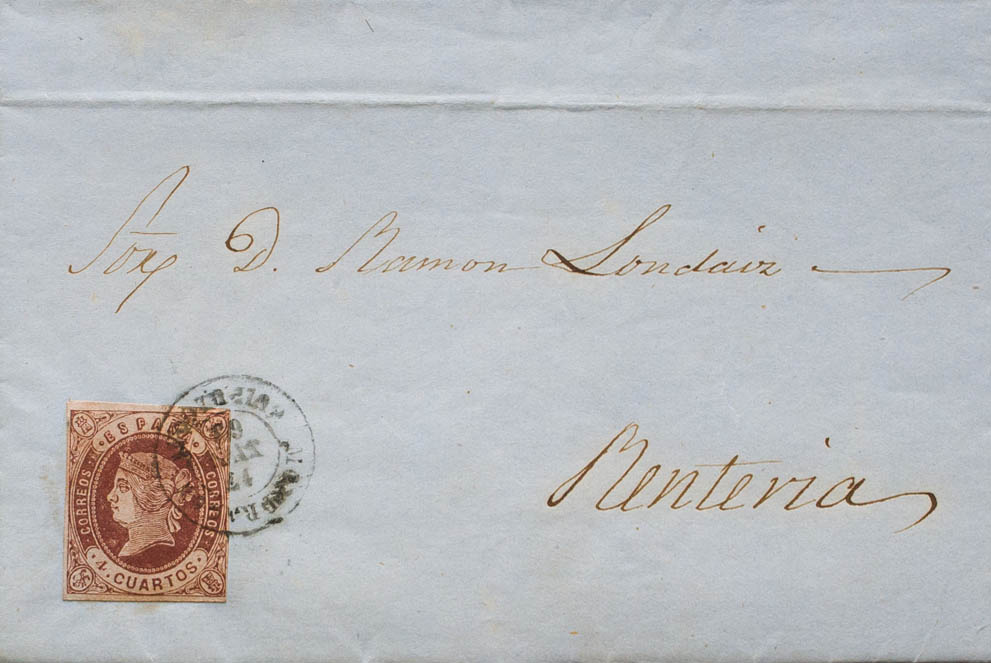 Sor D. Ramon Londaiz
Renteria
ESPAÑA
CORREOS
CORREOS
4 CUARTOS
63